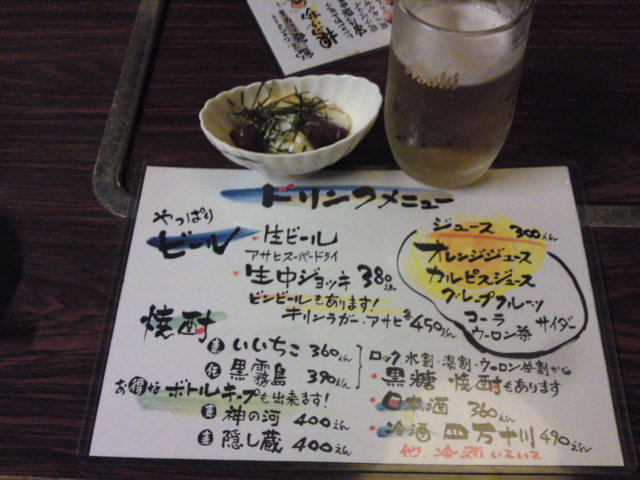 Asahi
ドリンクメニュー
やっぱり
ビール
・生ビール
アサヒスーパードライ
・生中ジョッキ 380えん
ビンビールもあります!
キリンラガー・アサヒ 各450えん
ジュース 300えん
オレンジジュース
カルピスジュース
グレープフルーツ
コーラ サイダー
ウーロン茶
焼酎
麦 いいちこ 360えん
芋 黒霧島 390えん
ロック・水割・湯割・ウーロン茶割から
・黒糖焼酎もあります
お得なボトルキープも出来ます!
麦 神の河 400えん
麦 隠し蔵 400えん
・日本酒 360えん
・冷酒 四万十川 490えん
他、冷酒いろいろ